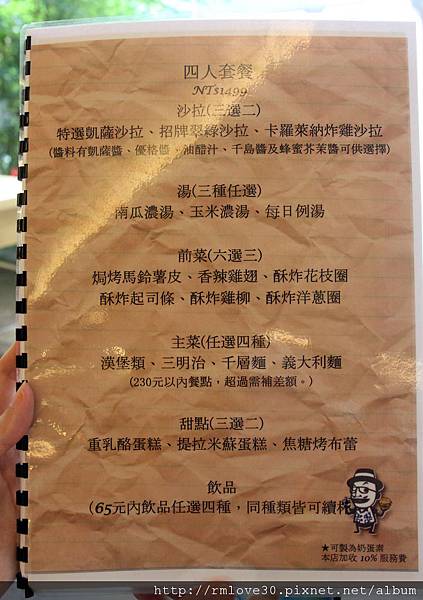 四人套餐
NT$1499
沙拉(三選二)
特選凱薩沙拉、招牌翠綠沙拉、卡羅萊納炸雞沙拉
(醬料有凱薩醬、優格醬、油醋汁、千島醬及蜂蜜芥茉醬可供選擇)
湯(三種任選)
南瓜濃湯、玉米濃湯、每日例湯
前菜(六選三)
焗烤馬鈴薯皮、香辣雞翅、酥炸花枝圈
酥炸起司條、酥炸雞柳、酥炸洋蔥圈
主菜(任選四種)
漢堡類、三明治、千層麵、義大利麵
(230元以內餐點，超過需補差額。)
甜點(三選二)
重乳酪蛋糕、提拉米蘇蛋糕、焦糖烤布蕾
飲品
(65元內飲品任選四種，同種類皆可續杯
★可製為奶蛋素
本店加收 10% 服務費
http://rmlove30.pixnet.net/album